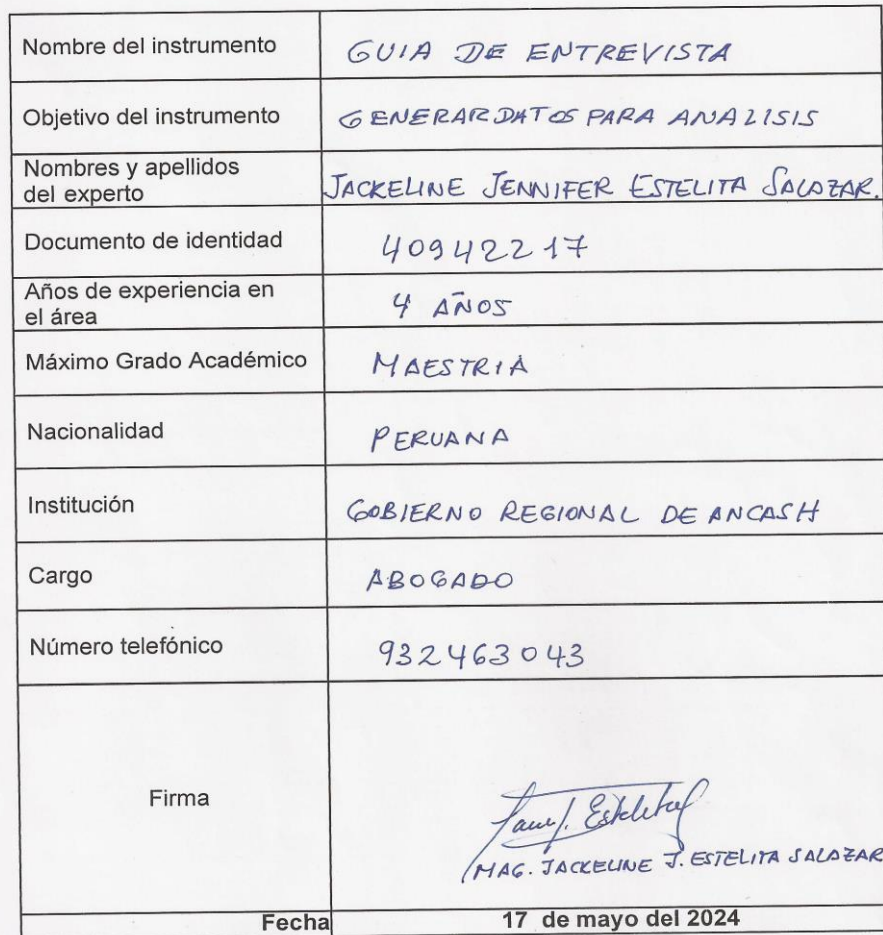 Nombre del instrumento GUIA DE ENTREVISTA
Objetivo del instrumento GENERAR DATOS PARA ANALISIS
Nombres y apellidos
del experto JACKELINE JENNIFER ESTELITA SALAZAR.
Documento de identidad 40942217
Años de experiencia en
el área 4 AÑOS
Máximo Grado Académico MAESTRIA
Nacionalidad PERUANA
Institución GOBIERNO REGIONAL DE ANCASH
Cargo ABOGADO
Número telefónico 932463043
Firma
MAG. JACKELINE J. ESTELITA SALAZAR
Fecha 17 de mayo del 2024